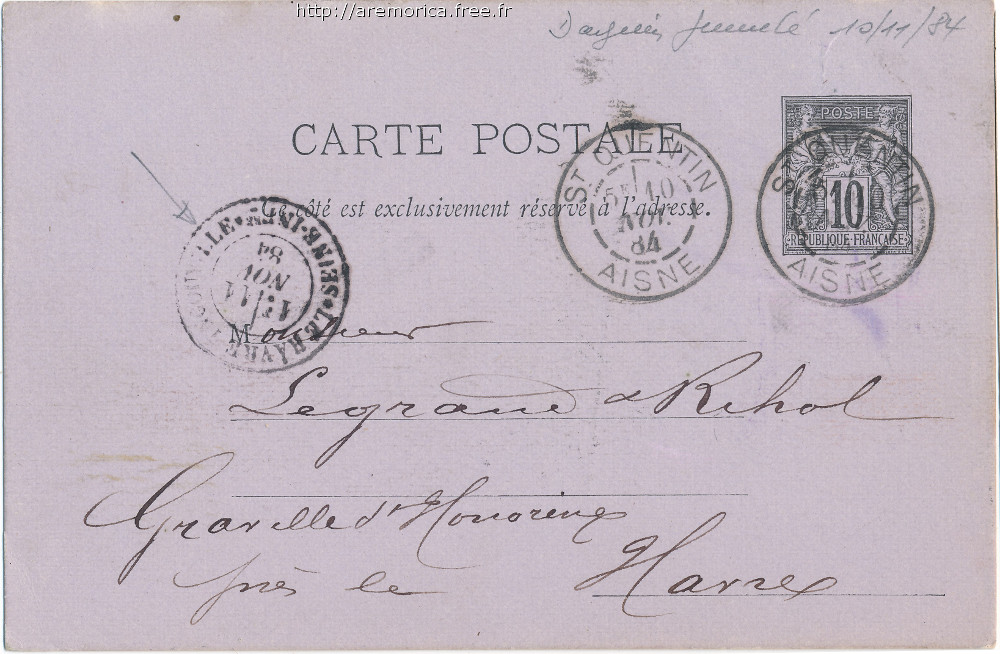 http://aremorica.free.fr
10/11/84
CARTE POSTALE
Ce côté est exclusivement réservé à l'adresse.
POSTE
10
RÉPUBLIQUE FRANÇAISE
ST QUENTIN
10
NOV.
84
AISNE
ST QUENTIN
AISNE
LE HAVRE INGOUVILLE SEINE-INFRE
11
NOV
84
Monsieur
Legrand & Rihol
Graville Ste Honorine
près le Havre